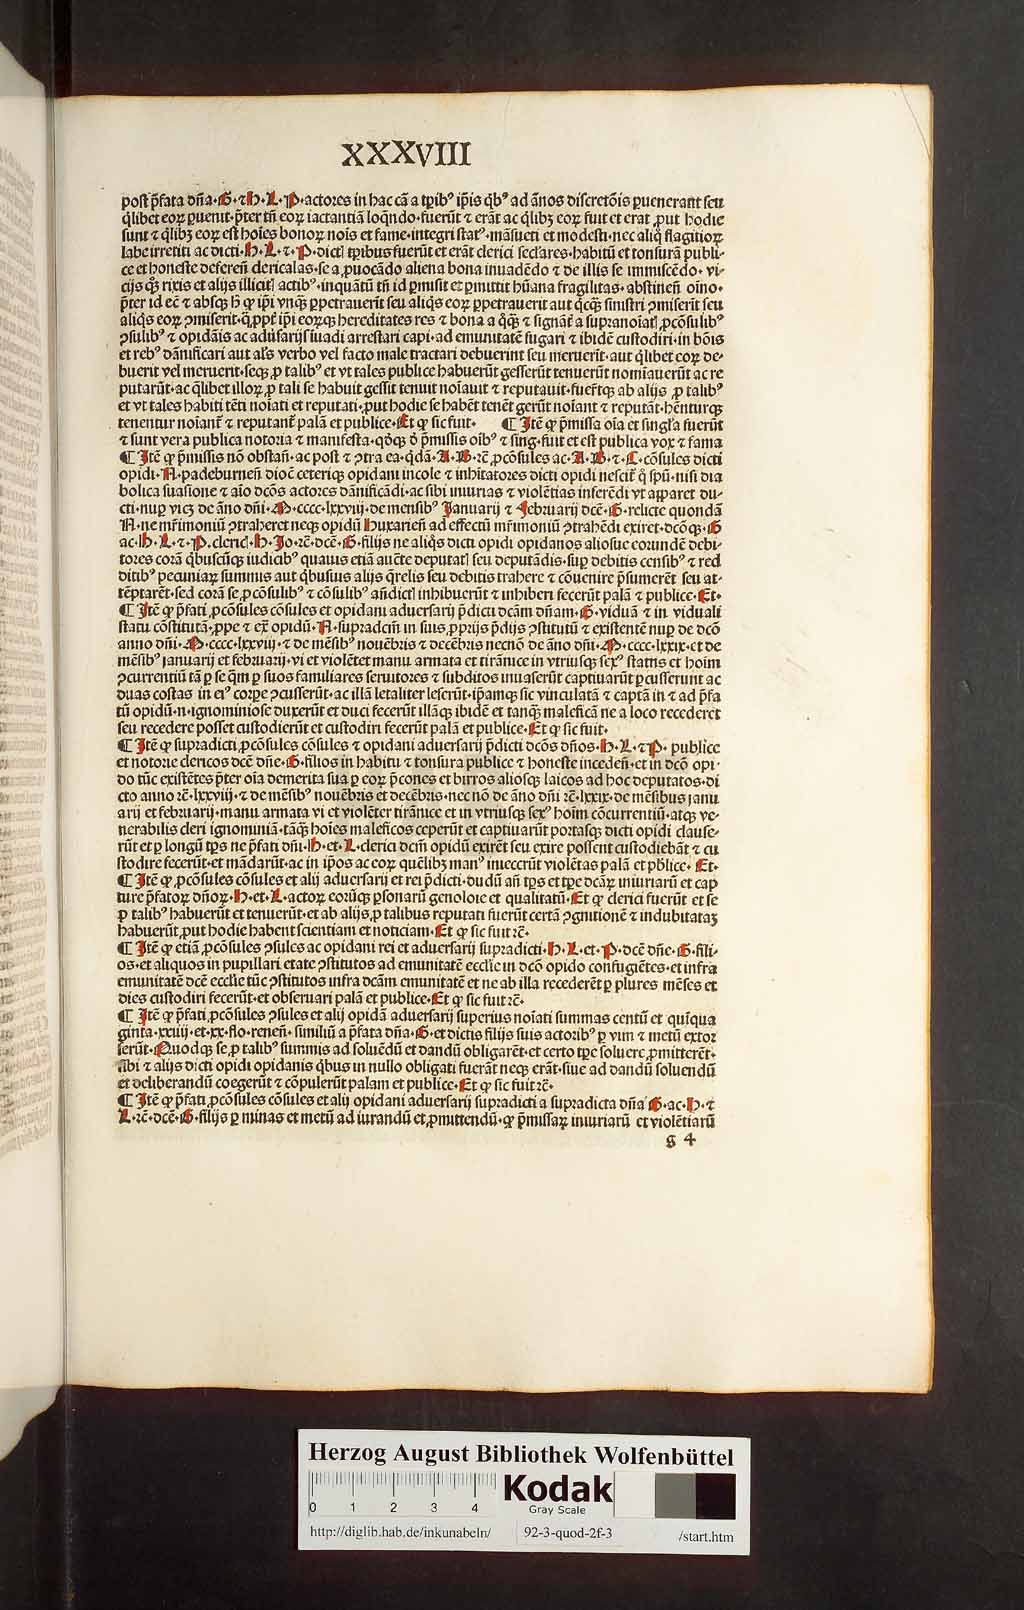 XXXVIII
post p̄fata dn̄a·G·⁊H·L·P·actores in hac cā a tp̱ibꝰ ip̄is q̄bꝰ ad ānos discretōis ꝑuenerant seu
q̄libet eoꝝ ꝑuenit·p̄ter tn̄ eoꝝ iactantiā loq̄ndo·fuerūt ⁊ erāt ac q̄libꝫ eoꝝ fuit et erat ꝓut hodie
sunt ⁊ q̄libꝫ eoꝝ est hoīes bonoꝝ nois et fame·integri statꝰ·māsueti et modesti·nec aliq̄ flagitioꝝ
labe irretiti ac dicti·H·L·⁊·P·dictꝭ tp̱ibus fuerūt et erāt clerici sec̄lares·habitū et tonsurā publi-
ce et honeste deferen̄ clericalas·se a ꝓuocādo aliena bona inuadēdo ⁊ de illis se immiscēdo·vi-
cijs qꝫ rixis et alijs illicitꝭ actibꝰ·inquātū tn̄ id ꝑmisit et ꝑmittit hūana fragilitas·abstinen̄ oīno·
p̄ter id ec̄ ⁊ absqꝫ h̄ ꝙ ip̄i vnqꝫ ꝑpetrauerīt seu aliq̄s eoꝝ ꝑpetrauerit aut q̄cqꝫ sinistri ꝯmiserit seu
aliq̄s eoꝝ ꝯmiserit·q̄ ꝓpt̄ ip̄i eoꝝqꝫ hereditates res ⁊ bona a q̄qꝫ ⁊ signāt̄ a supranoīatꝭ ꝓcōsulibꝰ
ꝯsulibꝰ ⁊ opidāis ac aduersarijs inuadi arrestari capi·ad emunitatē fugari ⁊ ibidē custodiri·in bōis
et rebꝰ dānificari aut al̄s verbo vel facto male tractari debuerint seu meruerīt·aut q̄libet eoꝝ de-
buerit vel meruerit·secqꝫ ꝓ talibꝰ et vt tales publice habuerūt gesserūt tenuerūt nomīauerūt ac re
putarūt·ac q̄libet illoꝝ ꝓ tali se habuit gessit tenuit noīauit ⁊ reputauit·fuer̄tqꝫ ab alijs ꝓ talibꝰ
et vt tales habiti tēti noīati et reputati·ꝓut hodie se habēt tenēt gerūt noīant ⁊ reputāt·hn̄turqꝫ
tenentur noīant̄ ⁊ reputant̄ palā et publice·Et ꝙ sic fuit·    ¶ Itē ꝙ p̄missa oīa et singl̄a fuerūt
⁊ sunt vera publica notoria ⁊ manifesta·q̄ōqꝫ ō p̄missis oībꝰ ⁊ sing·fuit et est publica vox ⁊ fama
¶ Itē ꝙ p̄missis nō obstan̄·ac post ⁊ ꝯtra ea·q̄dā·A·B·rc̄ ꝓcōsules ac·A·B·⁊·C·cōsules dicti
opidi·N·padeburnen̄ dioc̄ ceteriqꝫ opidani incole ⁊ inhītatores dicti opidi nescit̄ q̄ sp̄u·nisi dia
bolica suasione ⁊ aīo dcōs actores dānificādi·ac sibi iniurias ⁊ violētias inferēdi vt apparet du-
cti·nuꝑ vicꝫ de āno dn̄i·M·cccc·lxxviij·de mensibꝰ Januarij ⁊ Februarij dcē·G·relicte quondā
N·ne mr̄imoniū ꝯtraheret neqꝫ opidū Huxarien̄ ad effectū mr̄imoniū ꝯtrahēdi exiret·dcōqꝫ·G
ac·H·L·⁊·P·clericꝭ·H·Jo·rc̄·dcē·G·filijs ne aliq̄s dicti opidi opidanos aliosue eorundē debi-
tores corā q̄buscūqꝫ iudicibꝰ quauis etiā auc̄te deputatꝭ seu deputādis·suꝑ debitis censibꝰ ⁊ red
ditibꝰ pecuniaꝝ summis aut q̄busuis alijs q̄relis seu debitis trahere ⁊ cōuenire p̄sumerēt seu at-
tēptarēt·sed corā se ꝓcōsulibꝰ ⁊ cōsulibꝰ an̄dictꝭ inhibuerūt ⁊ inhiberi fecerūt palā ⁊ publice·Et·
¶ Itē ꝙ p̄fati ꝓcōsules cōsules et opidani aduersarij p̄dicti dcām dn̄am·G·viduā ⁊ in viduali
statu cōstitutā ꝓpe ⁊ ex̄ opidū·N·supradcm̄ in suis ꝓprijs p̄dijs ꝯstitutū ⁊ existentē nuꝑ de dcō
anno dn̄i·M·cccc·lxxviij·⁊ de mēsibꝰ nouēbris ⁊ decēbris necnō de āno dn̄i·M·cccc·lxxix·et de
mēsibꝰ ianuarij et februarij·vi et violēter manu armata et tirānice in vtriusqꝫ sexꝰ statns et hoīm
ꝯcurrentiū tā ꝑ se q̄m ꝑ suos familiares seruitores ⁊ subditos inuaserūt captiuarūt ꝑcusserunt ac
duas costas in eiꝰ corꝑe ꝯcusserūt·ac illā letaliter leserūt·ip̄amqꝫ sic vinculatā ⁊ captā in ⁊ ad p̄fa
tū opidū·n·ignominiose duxerūt et duci fecerūt illāqꝫ ibidē et tanqꝫ maleficā ne a loco recederet
seu recedere posset custodierūt et custodiri fecerūt palā et publice·Et ꝙ sic fuit·
¶ Itē ꝙ supradicti ꝓcōsules cōsules ⁊ opidani aduersarij p̄dicti dcōs dn̄os·H·L·⁊P· publice
et notorie clericos dcē dn̄e·G·filios in habitu ⁊ tonsura publice ⁊ honeste inceden̄·et in dcō opi·
do tūc existētes p̄ter oīa demerita sua ꝑ eoꝝ p̄cones et birros aliosqꝫ laicos ad hoc deputatos·di
cto anno rc̄·lxxviij·⁊ de mēsibꝰ nouēbris et decēbris·nec nō de āno dn̄i rc̄·lxxix·de mēsibus ianu
arij et februarij·manu armata vi et violēter tirānice et in vtriusqꝫ sexꝰ hoīm cōcurrentiū·atqꝫ ve-
nerabilis cleri ignominiā·tāqꝫ hoīes maleficos ceperūt et captiuarūt portasqꝫ dicti opidi clause-
rūt et ꝑ longū tp̱s ne p̄fati dn̄i·H·et·L·clerici dcm̄ opidū exirēt seu exire possent custodiebāt ⁊ cu
stodire fecerūt·et mādarūt·ac in ip̄os ac eoꝝ quēlibꝫ manꝰ inieccrūt violētas palā et pb̄lice· Et·
¶ Itē ꝙ ꝓcōsules cōsules et alij aduersarij et rei p̄dicti·dudū an̄ tp̱s et tp̱e dcāꝝ iniuriarū et cap
ture p̄fatoꝝ dn̄oꝝ·H·et·L·actoꝝ corūqꝫ ꝑsonarū genoloie et qualitatū·Et ꝙ clerici fuerūt et se
ꝑ talibꝰ habuerūt et tenuerūt·et ab alijs ꝓ talibus reputati fuerūt certā ꝯgnitionē ⁊ indubitataꝫ
habuerūt ꝓut hodie habent scientiam et noticiam·Et ꝙ sic fuit rc̄·
¶ Itē ꝙ etiā ꝓcōsules ꝯsules ac opidani rei et aduersarij supradicti·H·L·et·P·dcē dn̄e·G·fili-
os·et aliquos in pupillari etate ꝯstitutos ad emunitatē eccl̄ie in dcō opido confugiētes·et infra
emunitatē dcē eccl̄ie tūc ꝯstitutos infra dcām emunitatē et ne ab illa recederēt ꝑ plures mēses et
dies custodiri fecerūt·et obseruari palā et publice·Et ꝙ sic fuit rc̄·
¶ Itē ꝙ p̄fati ꝓcōsules ꝯsules et alij opidā aduersarij superius noīati summas centū et quīqua
ginta·xxiiij·et·xx·flo·renen̄·similiū a p̄fata dn̄a·G·et dictis filijs suis actoribꝰ ꝑ vim ⁊ metū extor
serūt·Quodqꝫ se ꝓ talibꝰ summis ad soluēdū et dandū obligarēt·et certo tp̱e soluere ꝓmitterēt·
sibi ⁊ alijs dicti opidi opidanis q̄bus in nullo obligati fuerāt neqꝫ erāt·siue ad dandū soluendū
et deliberandū coegerūt ⁊ cōpulerūt palam et publice·Et ꝙ sic fuit rc̄·
¶ Itē ꝙ p̄fati ꝓcōsules cōsules et alij opidani aduersarij supradicti a supradicta dn̄a G·ac·H·⁊
L·rc̄·dcē·G·filijs ꝑ minas et metū ad iurandū et ꝓmittendū·ꝙ p̄missaꝝ iniuriarū et violētiarū
g 4
Herzog August Bibliothek Wolfenbüttel
0 1 2 3 4
Kodak
Gray Scale
http://diglib.hab.de/inkunabeln/ 92-3-quod-2f-3 /start.htm